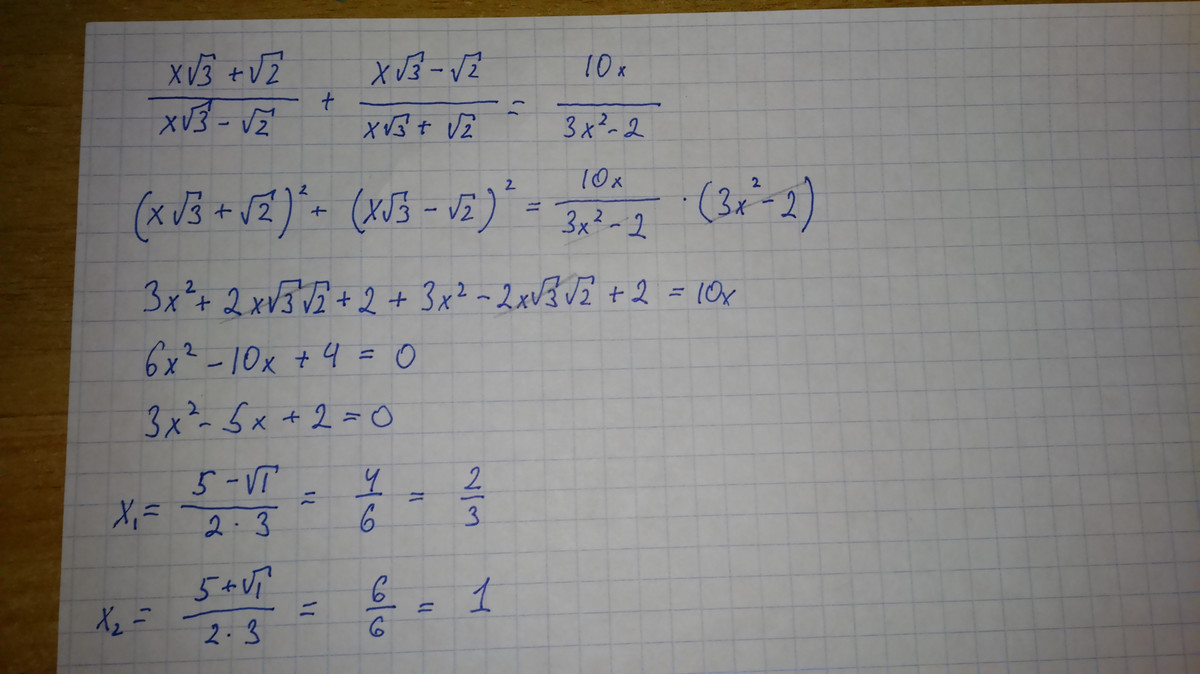 (x√3 + √2)/(x√3 - √2) + (x√3 - √2)/(x√3 + √2) = 10x/(3x² - 2)
(x√3 + √2)² + (x√3 - √2)² = 10x/(3x² - 2) · (3x² - 2)
3x² + 2x√3√2 + 2 + 3x² - 2x√3√2 + 2 = 10x
6x² - 10x + 4 = 0
3x² - 5x + 2 = 0
x₁ = (5 - √1)/(2 · 3) = 4/6 = 2/3
x₂ = (5 + √1)/(2 · 3) = 6/6 = 1